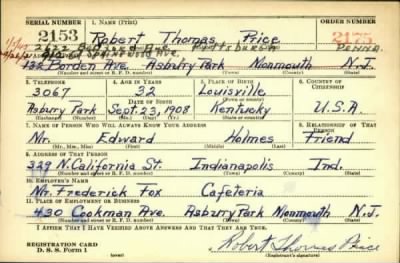 SERIAL NUMBER 1. NAME (Print) ORDER NUMBER
2153 Robert Thomas Price 2175
(First) (Middle) (Last)
2622 Bedford Ave Pittsburgh PENNA.
132 Borden Ave. Asbury Park Monmouth N.J.
(Number and street or R. F. D. number) (Town) (County) (State)
2. TELEPHONE 3. AGE IN YEARS 5. PLACE OF BIRTH 6. COUNTRY OF CITIZENSHIP
3067 32 Louisville
DATE OF BIRTH (Town or county)
Asbury Park Sept. 23, 1908 Kentucky U.S.A.
(Exchange) (Number) (Mo.) (Day) (Yr.) (State or country)
7. NAME OF PERSON WHO WILL ALWAYS KNOW YOUR ADDRESS 8. RELATIONSHIP OF THAT PERSON
Mr. Edward Holmes Friend
(Mr., Mrs., Miss) (First) (Middle) (Last)
9. ADDRESS OF THAT PERSON
329 N. California St. Indianapolis Ind.
(Number and street or R. F. D. number) (Town) (County) (State)
10. EMPLOYER'S NAME
Mr. Frederick Fox Cafeteria
11. PLACE OF EMPLOYMENT OR BUSINESS
430 Cookman Ave. Asbury Park Monmouth N.J.
(Number and street or R. F. D. number) (Town) (County) (State)
I AFFIRM THAT I HAVE VERIFIED ABOVE ANSWERS AND THAT THEY ARE TRUE.
REGISTRATION CARD
D. S. S. Form 1 (over) Robert Thomas Price
(Registrant's signature)